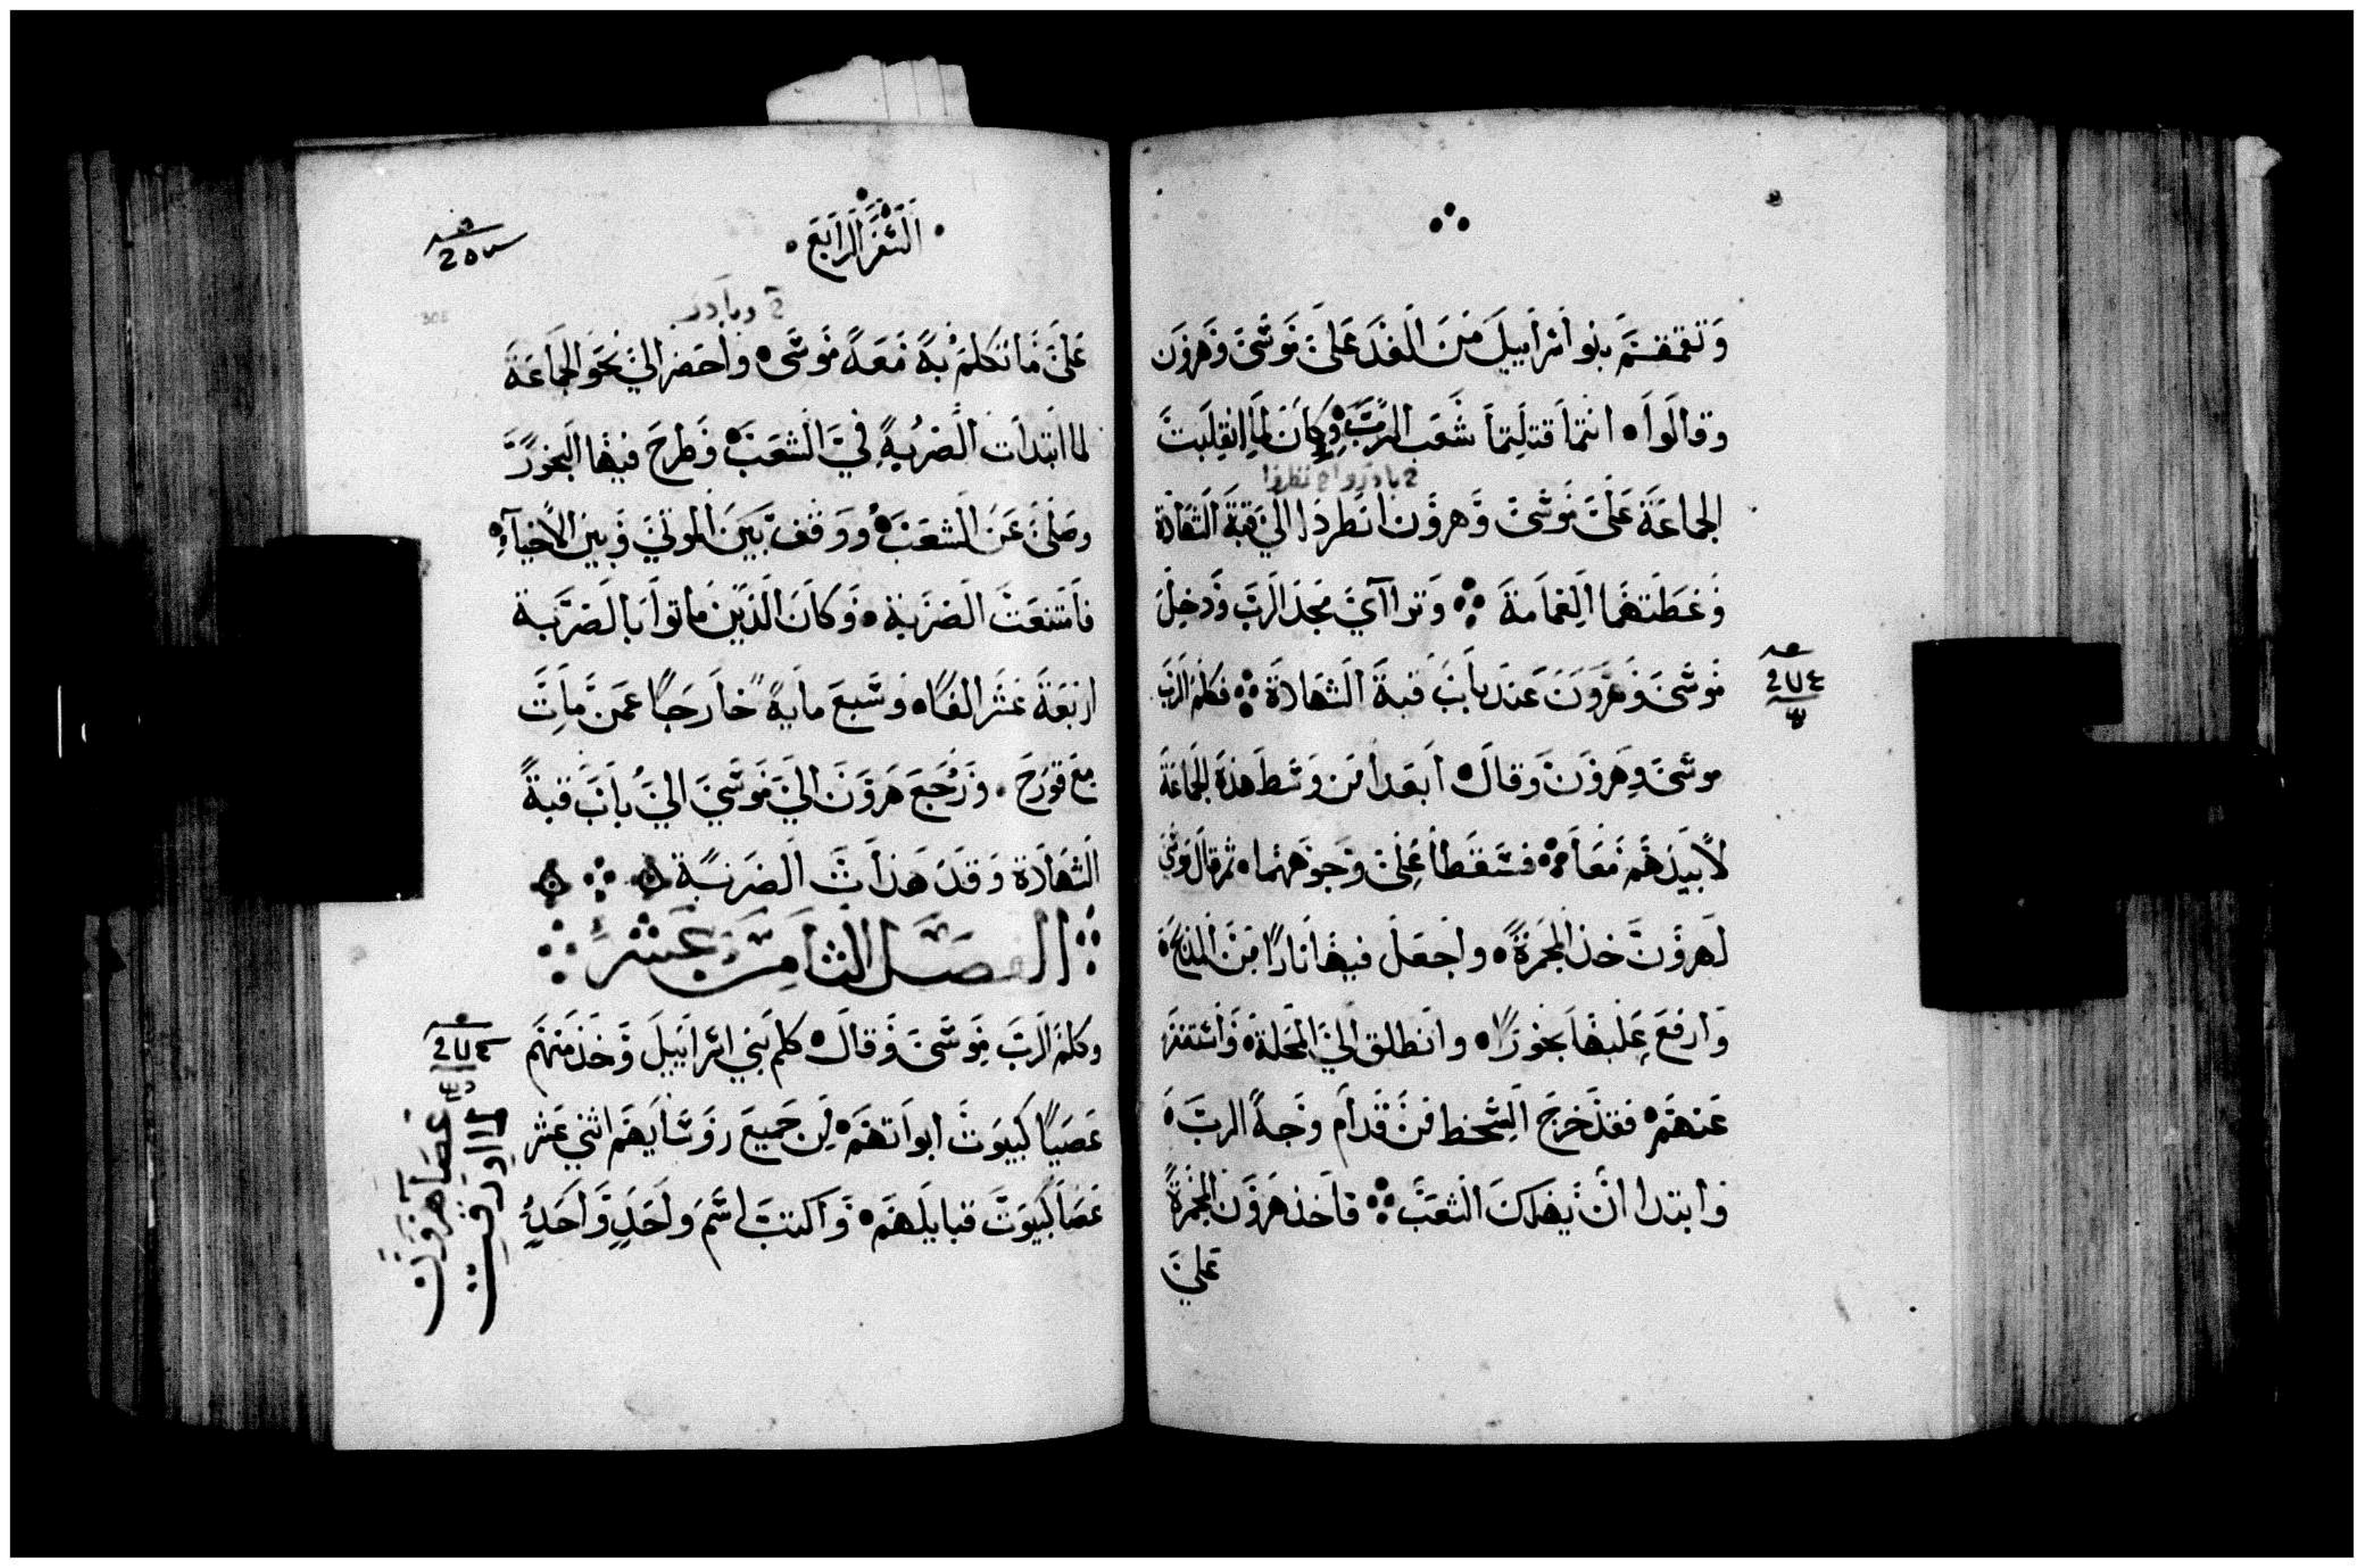 وتقمقم بنو اسراييل من الغد على موسى وهرون
وقالوا انتما قتلتما شعب الرب وكان لما انقلبت
الجماعة على موسى وهرون انطردا الي قبة الشهادة
وغطتهما الغمامة وتراآي مجد الرب ودخل
موسى وهرون عند باب قبة الشهادة فكلم الرب
موسى وهرون وقال ابعدا من وسط هذه الجماعة
لابيدهم معا فسقطا على وجوههما ثم قال موسى
لهرون خذ المجمرة واجعل فيها نارا من المذبح
وارفع عليها بخورا وانطلق الي المحلة واستغفر
عنهم فقد خرج السخط من قدام وجه الرب
وابتدا ان يهلك الشعب فاخذ هرون المجمرة
علي
السفر الرابع
وبادر
على ما تكلم به معه موسى واحضر الي نحو الجماعة
لما ابتدات الضربة في الشعب وطرح فيها البخور
وصلى عن الشعب ووقف بين الموتي وبين الاحيآء
فامتنعت الضربة وكان الذين ماتوا بالضربة
اربعة عشر الفا وسبع ماية خارجا عمن مات
مع قورح ورجع هرون الي موسى الي باب قبة
الشهادة وقد هدات الضربة
الفصل الثامن عشر
وكلم الرب موسى وقال كلم بني اسراييل وخذ منهم
عصيا كبيوت ابواتهم من جميع روسايهم اثني عشر
عصا كبيوت قبايلهم واكتب اسم واحد واحد
عصا هرون
التي اورقت